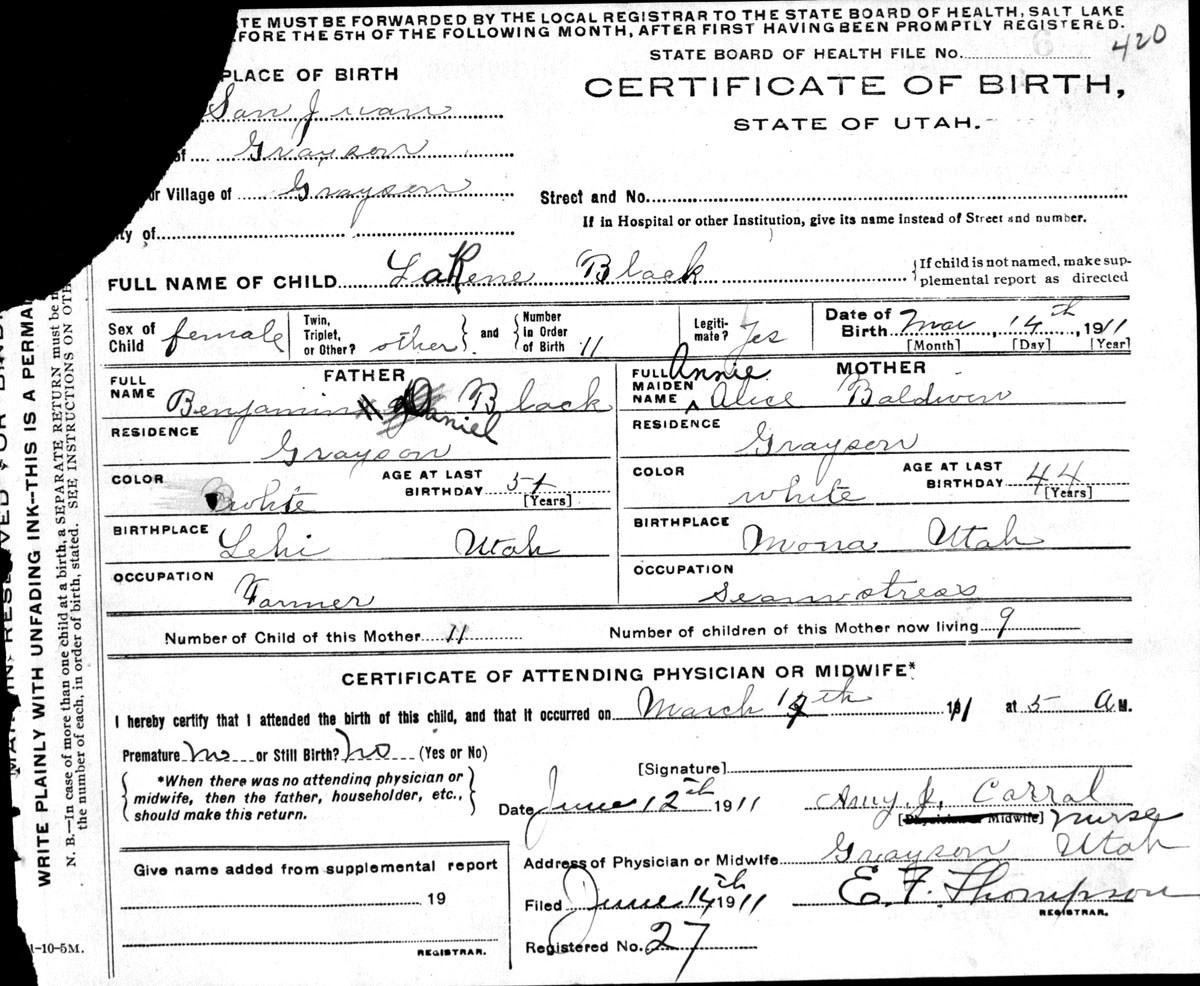 TE MUST BE FORWARDED BY THE LOCAL REGISTRAR TO THE STATE BOARD OF HEALTH, SALT LAKE
FORE THE 5TH OF THE FOLLOWING MONTH, AFTER FIRST HAVING BEEN PROMPTLY REGISTERED.
STATE BOARD OF HEALTH FILE No. 420
PLACE OF BIRTH
CERTIFICATE OF BIRTH,
STATE OF UTAH.
San Juan
of Grayson
or Village of Grayson
Street and No.
If in Hospital or other Institution, give its name instead of Street and number.
ty of
FULL NAME OF CHILD LaRene Black {If child is not named, make sup-
plemental report as directed
Sex of Child female Twin, Triplet, or Other? other and Number in Order of Birth 11 Legiti-mate? Yes Date of Birth Mar 14th, 1911
[Month] [Day] [Year]
FATHER
FULL NAME Benjamin Daniel Black
RESIDENCE Grayson
COLOR white AGE AT LAST BIRTHDAY 54 [Years]
BIRTHPLACE Lehi Utah
OCCUPATION Farmer
MOTHER
FULL MAIDEN NAME Annie Alice Baldwin
RESIDENCE Grayson
COLOR white AGE AT LAST BIRTHDAY 44 [Years]
BIRTHPLACE Mona Utah
OCCUPATION Seamstress
Number of Child of this Mother 11 Number of children of this Mother now living 9
CERTIFICATE OF ATTENDING PHYSICIAN OR MIDWIFE*
I hereby certify that I attended the birth of this child, and that it occurred on March 14th 1911 at 5 A M.
Premature no or Still Birth? no (Yes or No)
*When there was no attending physician or
midwife, then the father, householder, etc.,
should make this return.
[Signature]
Date June 12th 1911 Amy J. Carral
[Physician or Midwife] Nurse
Address of Physician or Midwife Grayson Utah
Filed June 14th 1911 E. F. Thompson
REGISTRAR.
Registered No. 27
Give name added from supplemental report
19
REGISTRAR.
1-10-5M.
WRITE PLAINLY WITH UNFADING INK–THIS IS A PERMA
N. B.—In case of more than one child at a birth, a SEPARATE RETURN must be m
the number of each, in order of birth, stated. SEE INSTRUCTIONS ON OTH